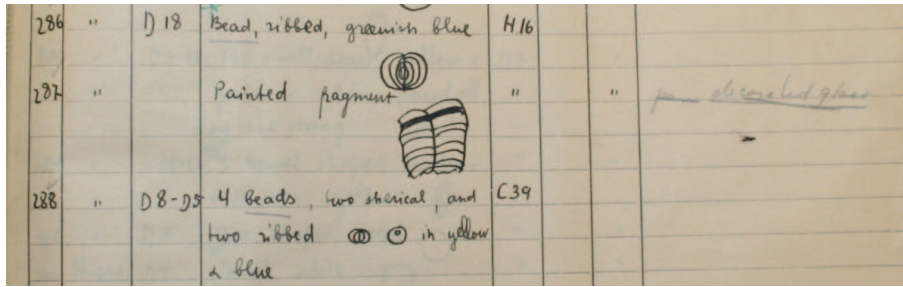 286 " D18 Bead, ribbed, greenish blue H16
287 " Painted fragment " " decorated glass
288 " D8-D5 4 beads, two sherical, and C39
two ribbed in yellow
& blue